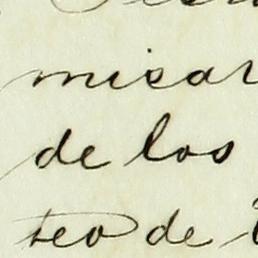 misar
de los
teo de